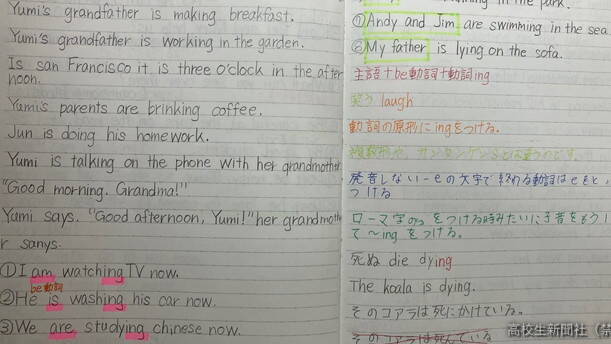 Yumi's grandfather is making breakfast.
Yumi's grandfather is working in the garden.
Is san Francisco it is three o'clock in the after
noon.
Yumi's parents are brinking coffee.
Jun is doing his homework.
Yumi is talking on the phone with her grandmother
"Good morning. Grandma!"
Yumi says. "Good afternoon, Yumi!" her grandmothe
r sanys.
①I am watching TV now.
be動詞
②He is washing his car now.
③We are studying chinese now.
in the park.
①Andy and Jim are swimming in the sea
②My father is lying on the sofa.
主語+be動詞+動詞ing
笑う laugh
動詞の原形にingをつける。
発音しない-eの文字で終わる動詞はeをと
つける
ローマ字の をつける時みたいに
て〜ingをつける。
死ぬ die dying
The koala is dying.
そのコアラは死にかけている。
そのコアラは死んでいる
高校生新聞社